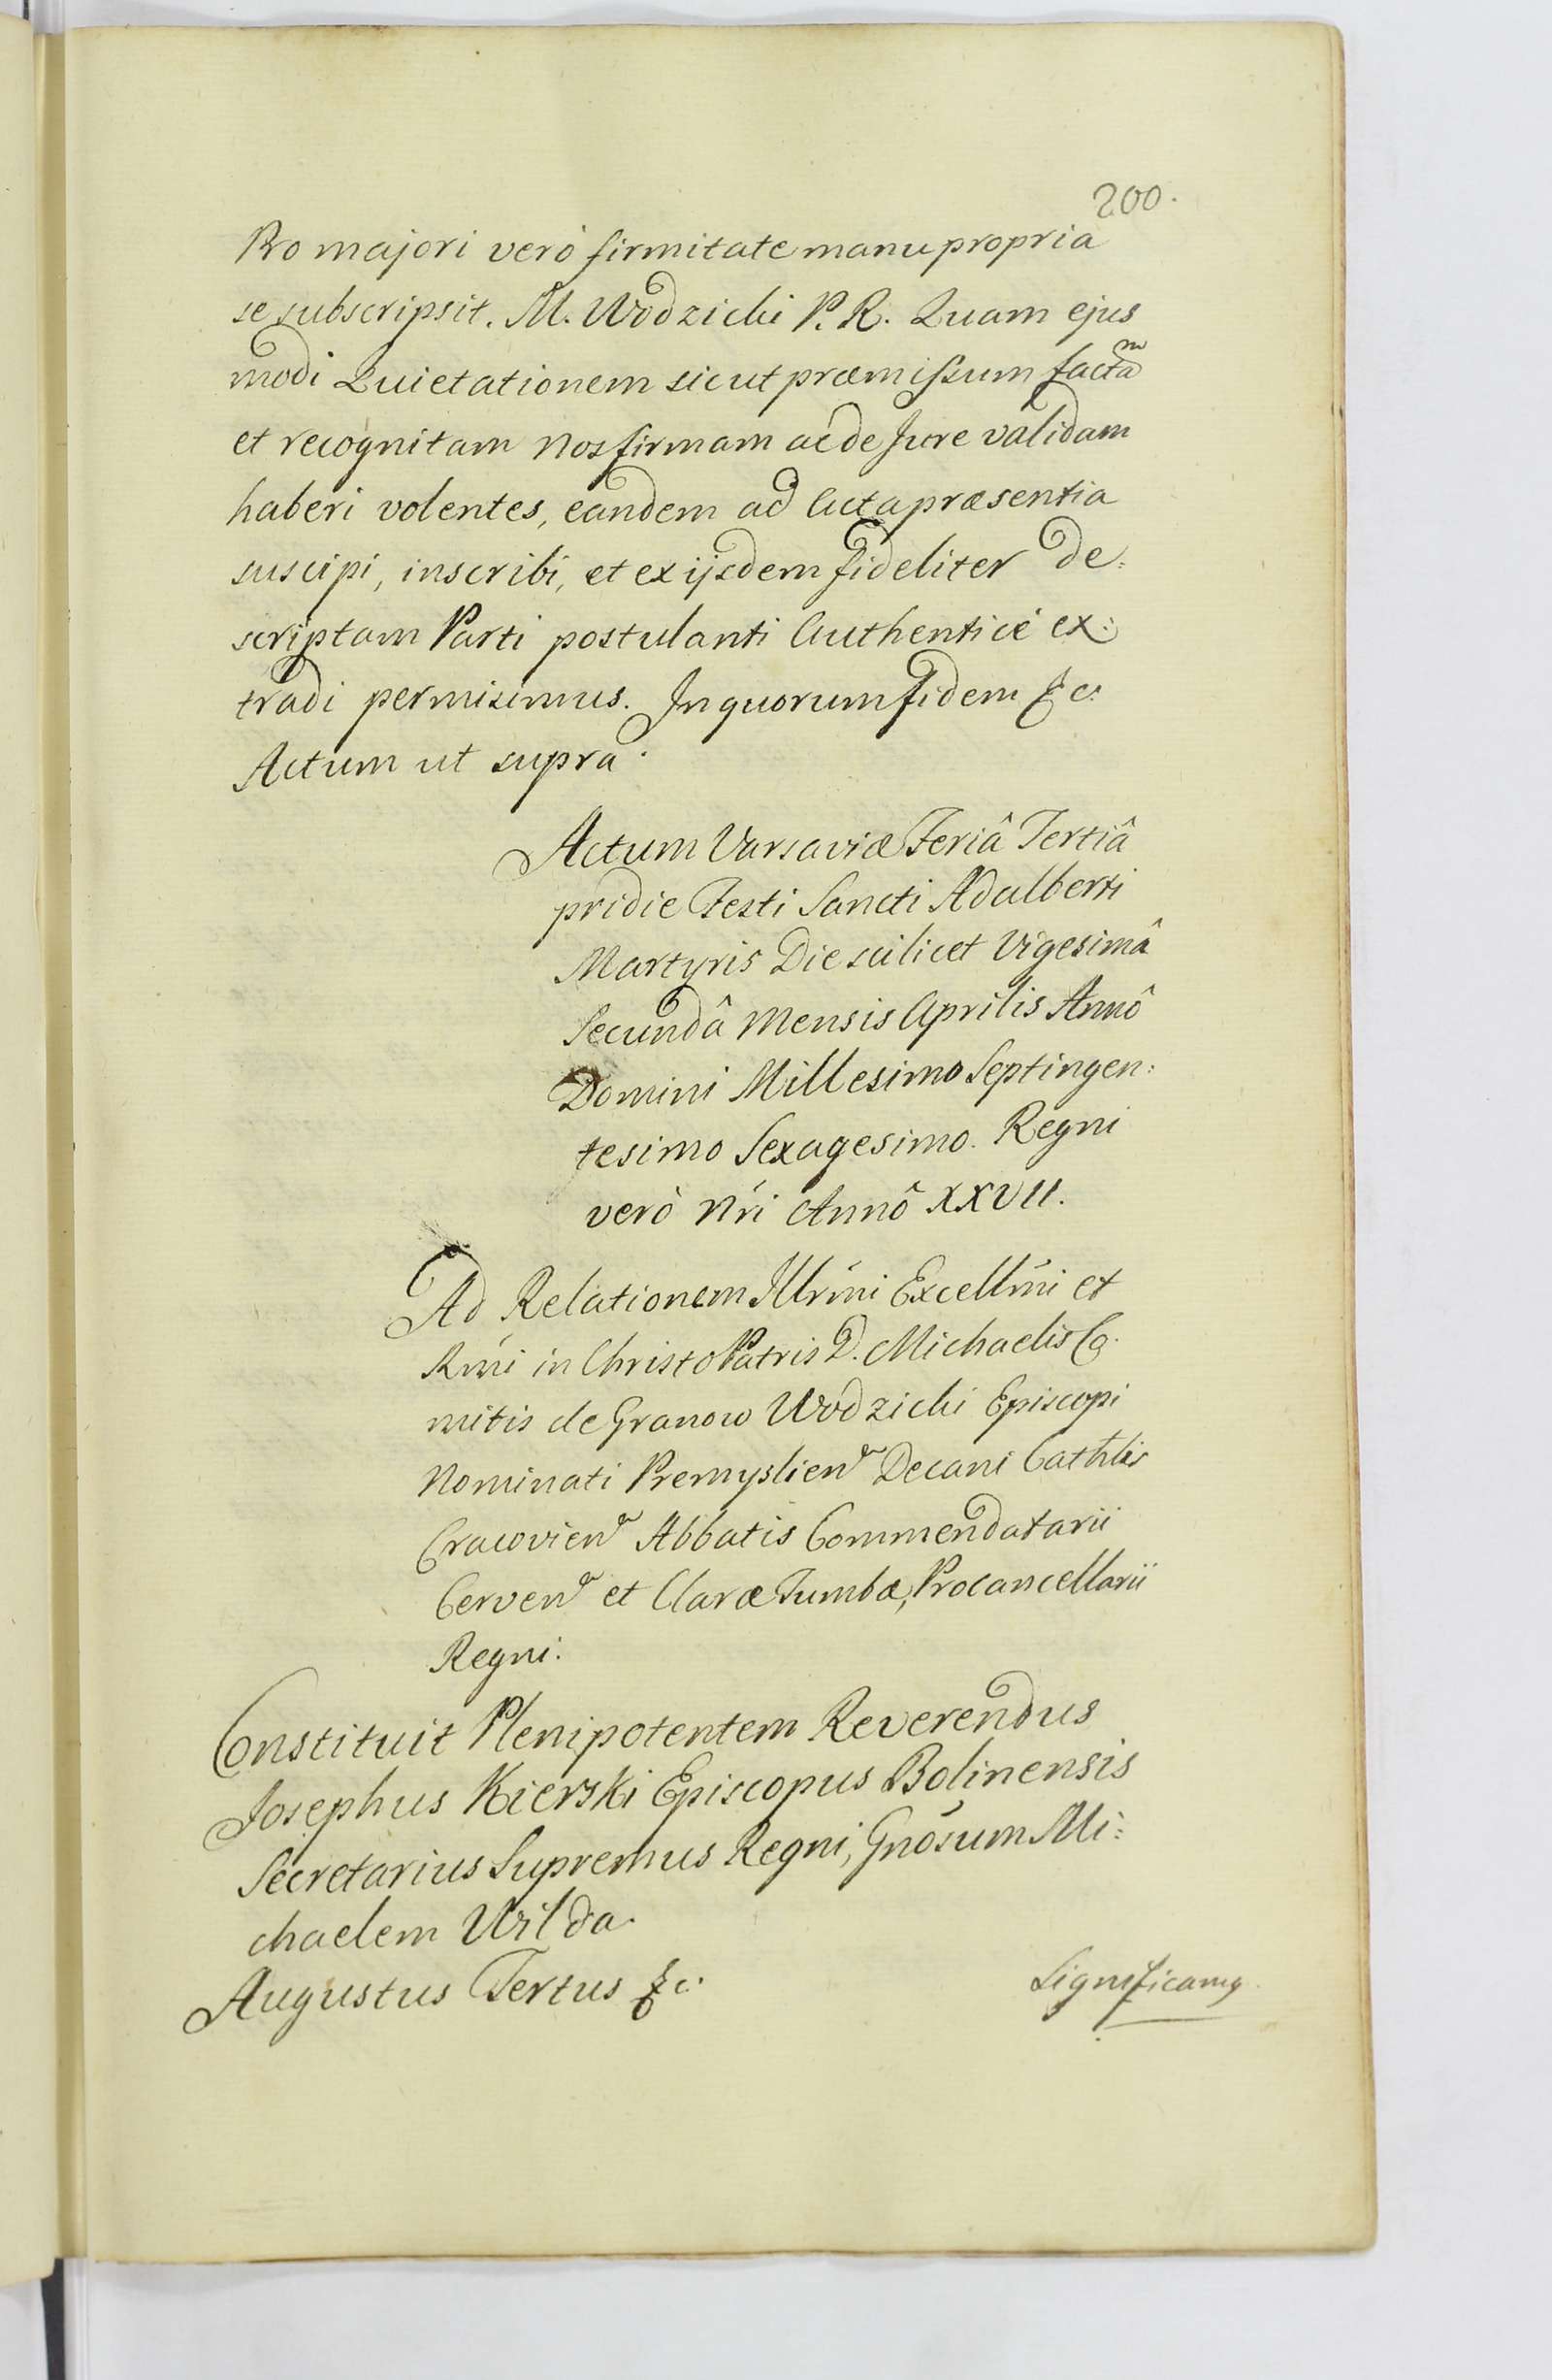 200.
Pro majori verò firmitate manu propria
se subscripsit. M. Wodzicki P. R. Quam ejus
modi Quietationem sicut præmissum factaᵐ
et recognitam nos firmam ac de Jure validam
haberi volentes, eandem ad Acta præsentia
suscipi, inscribi, et ex ijsdem fideliter de:
scriptam Parti postulanti Authenticè ex:
tradi permisimus. In quorum fidem &c.
Actum ut supra.
Actum Varsaviæ Feriâ Tertiâ
pridie Festi Sancti Adalberti
Martyris Die scilicet Vigesimâ
Secundâ Mensis Aprilis Annô
Domini Millesimo Septingen:
tesimo Sexagesimo. Regni
verò Nri Annô XXVII.
Ad Relationem Illrmi Excellmi et
Rmi in Christo Patris D. Michaelis Co.
mitis de Granow Wodzicki Episcopi
Nominati Premyslien Decani Cathlis
Cracovien Abbatis Commendatarii
Cerven et Claræ Tumbæ, Procancellarii
Regni.
Constituit Plenipotentem Reverendus
Josephus Kierski Episcopus Bolinensis
Secretarius Supremus Regni, Gnosum Mi:
chaelem Wilda.
Augustus Tertus &c.
Significamq